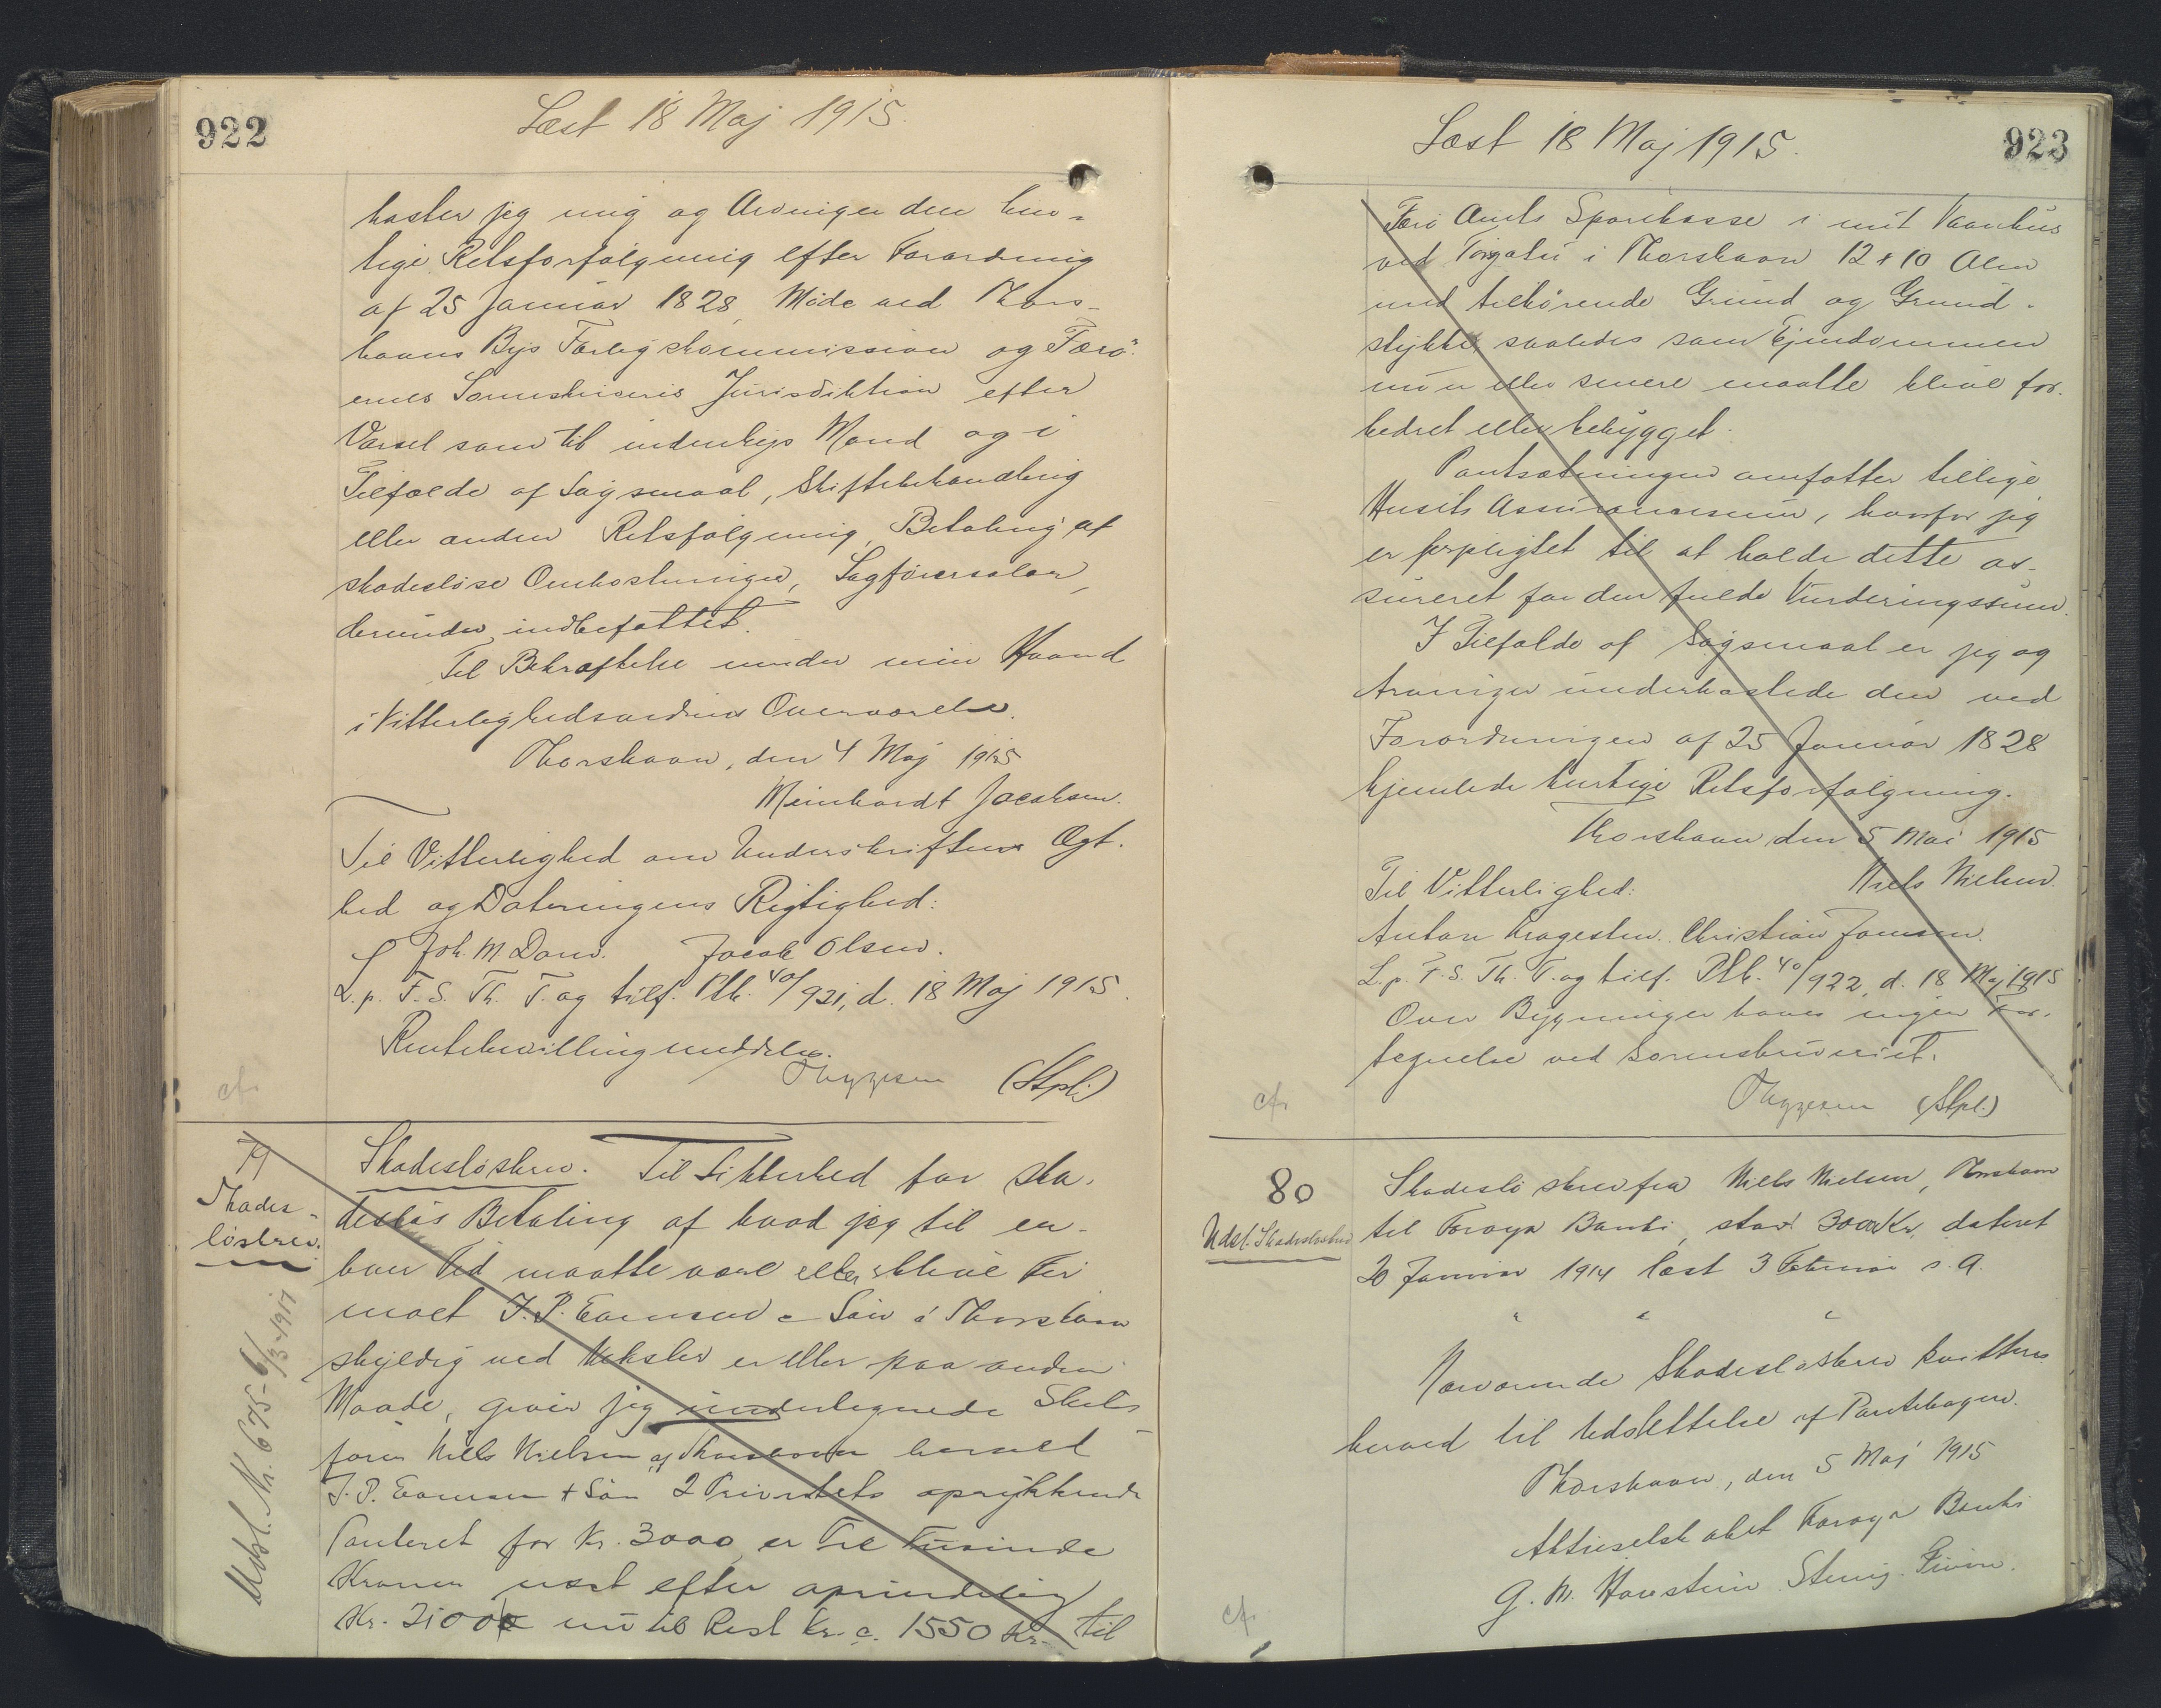 922
Læst 18 Maj 1915.
kaster jeg mig og Arvinger den hur-
tige Retsforfølgning efter Forordning
af 25 Januar 1828, Møde ved Thors-
havns Bys Forligskommission og Færø-
ernes Sorenskriveris Jurisdiktion efter
Varsel som til indenbys Mand og i
Tilfælde af Søgsmaal, Skiftebehandling
eller anden Retsfølgning, Betaling af
skadesløse Omkostninger, Sagførersalær
derunder indbefattet.
Til Bekræftelse under min Haand
i Vitterlighedsvidners Overværelse.
Thorshavn, den 4 Maj 1915
Meinhardt Jacobsen.
Til Vitterlighed om Underskriftens Ægt-
hed og Dateringens Rigtighed:
Joh. M Dam. Jacob Olsen.
L. p. F. S. Th. T. og tilf. Ptb. 40/921, d. 18 Maj 1915.
Rentebevilling meddeles.
Thygesen (Stpl.)
cfr
79
Skades-
løsbrev.
Skadesløsbrev. Til Sikkerhed for ska-
desløs Betaling af hvad jeg til en-
hver Tid maatte være eller blive Fir
maet J. P. Eamsen & Søn i Thorshavn
skyldig ved Veksler er eller paa anden
Maade, giver jeg undertegnede Skibs
fører Niels Nielsen af Thorshavn herved
J. P. Eamsen + Søn 2 Prioritets oprykkende
Panteret for Kr. 3000, er Tre Tusinde
Kroner næst efter oprindelig
Kr. 2100 nu til Rest Kr. c. 1550 Kr. til
Udsl. Nr. 675 - 6/3-1917
923
Læst 18 Maj 1915.
Færø Amts Sparekasse i mit Vaanhus
ved Torgatu i Thorshavn 12 + 10 Alen
med tilhørende Grund og Grund-
stykke, saaledes som Ejendommen
nu er eller senere maatte blive for-
bedret eller bebygget.
Pantsætningen omfatter tillige
Husets Assurancesum, hvorfor jeg
er forpligtet til at holde dette as-
sureret for den fulde Vurderingssum.
I Tilfælde af Søgsmaal er jeg og
Arvinger underkastede den ved
Forordningen af 25 Januar 1828
hjemlede hurtige Retsforfølgning.
Thorshavn den 5 Mai 1915
Niels Nielsen.
Til Vitterlighed:
Anton Kragesteen. Christian Joensen.
L. p. F. S. Th. T. og tilf. Ptb. 40/922, d. 18 Maj 1915
Over Bygninger haves ingen For-
tegnelse ved Sorenskriveriet.
Thygesen (Stpl.)
cfr
80
Udsl. Skadesløsbrev
Skadesløsbrev fra Niels Nielsen, Thorshavn
til Føroya Banki, stort 3000 Kr, dateret
20 Januar 1914 læst 3 Februar s. A.
" " "
Nærværende Skadesløsbrev kvitteres
herved til Udslettelse af Pantebogen.
Thorshavn, den 5 Maj 1915
Aktieselskabet Føroya Banki
cfr